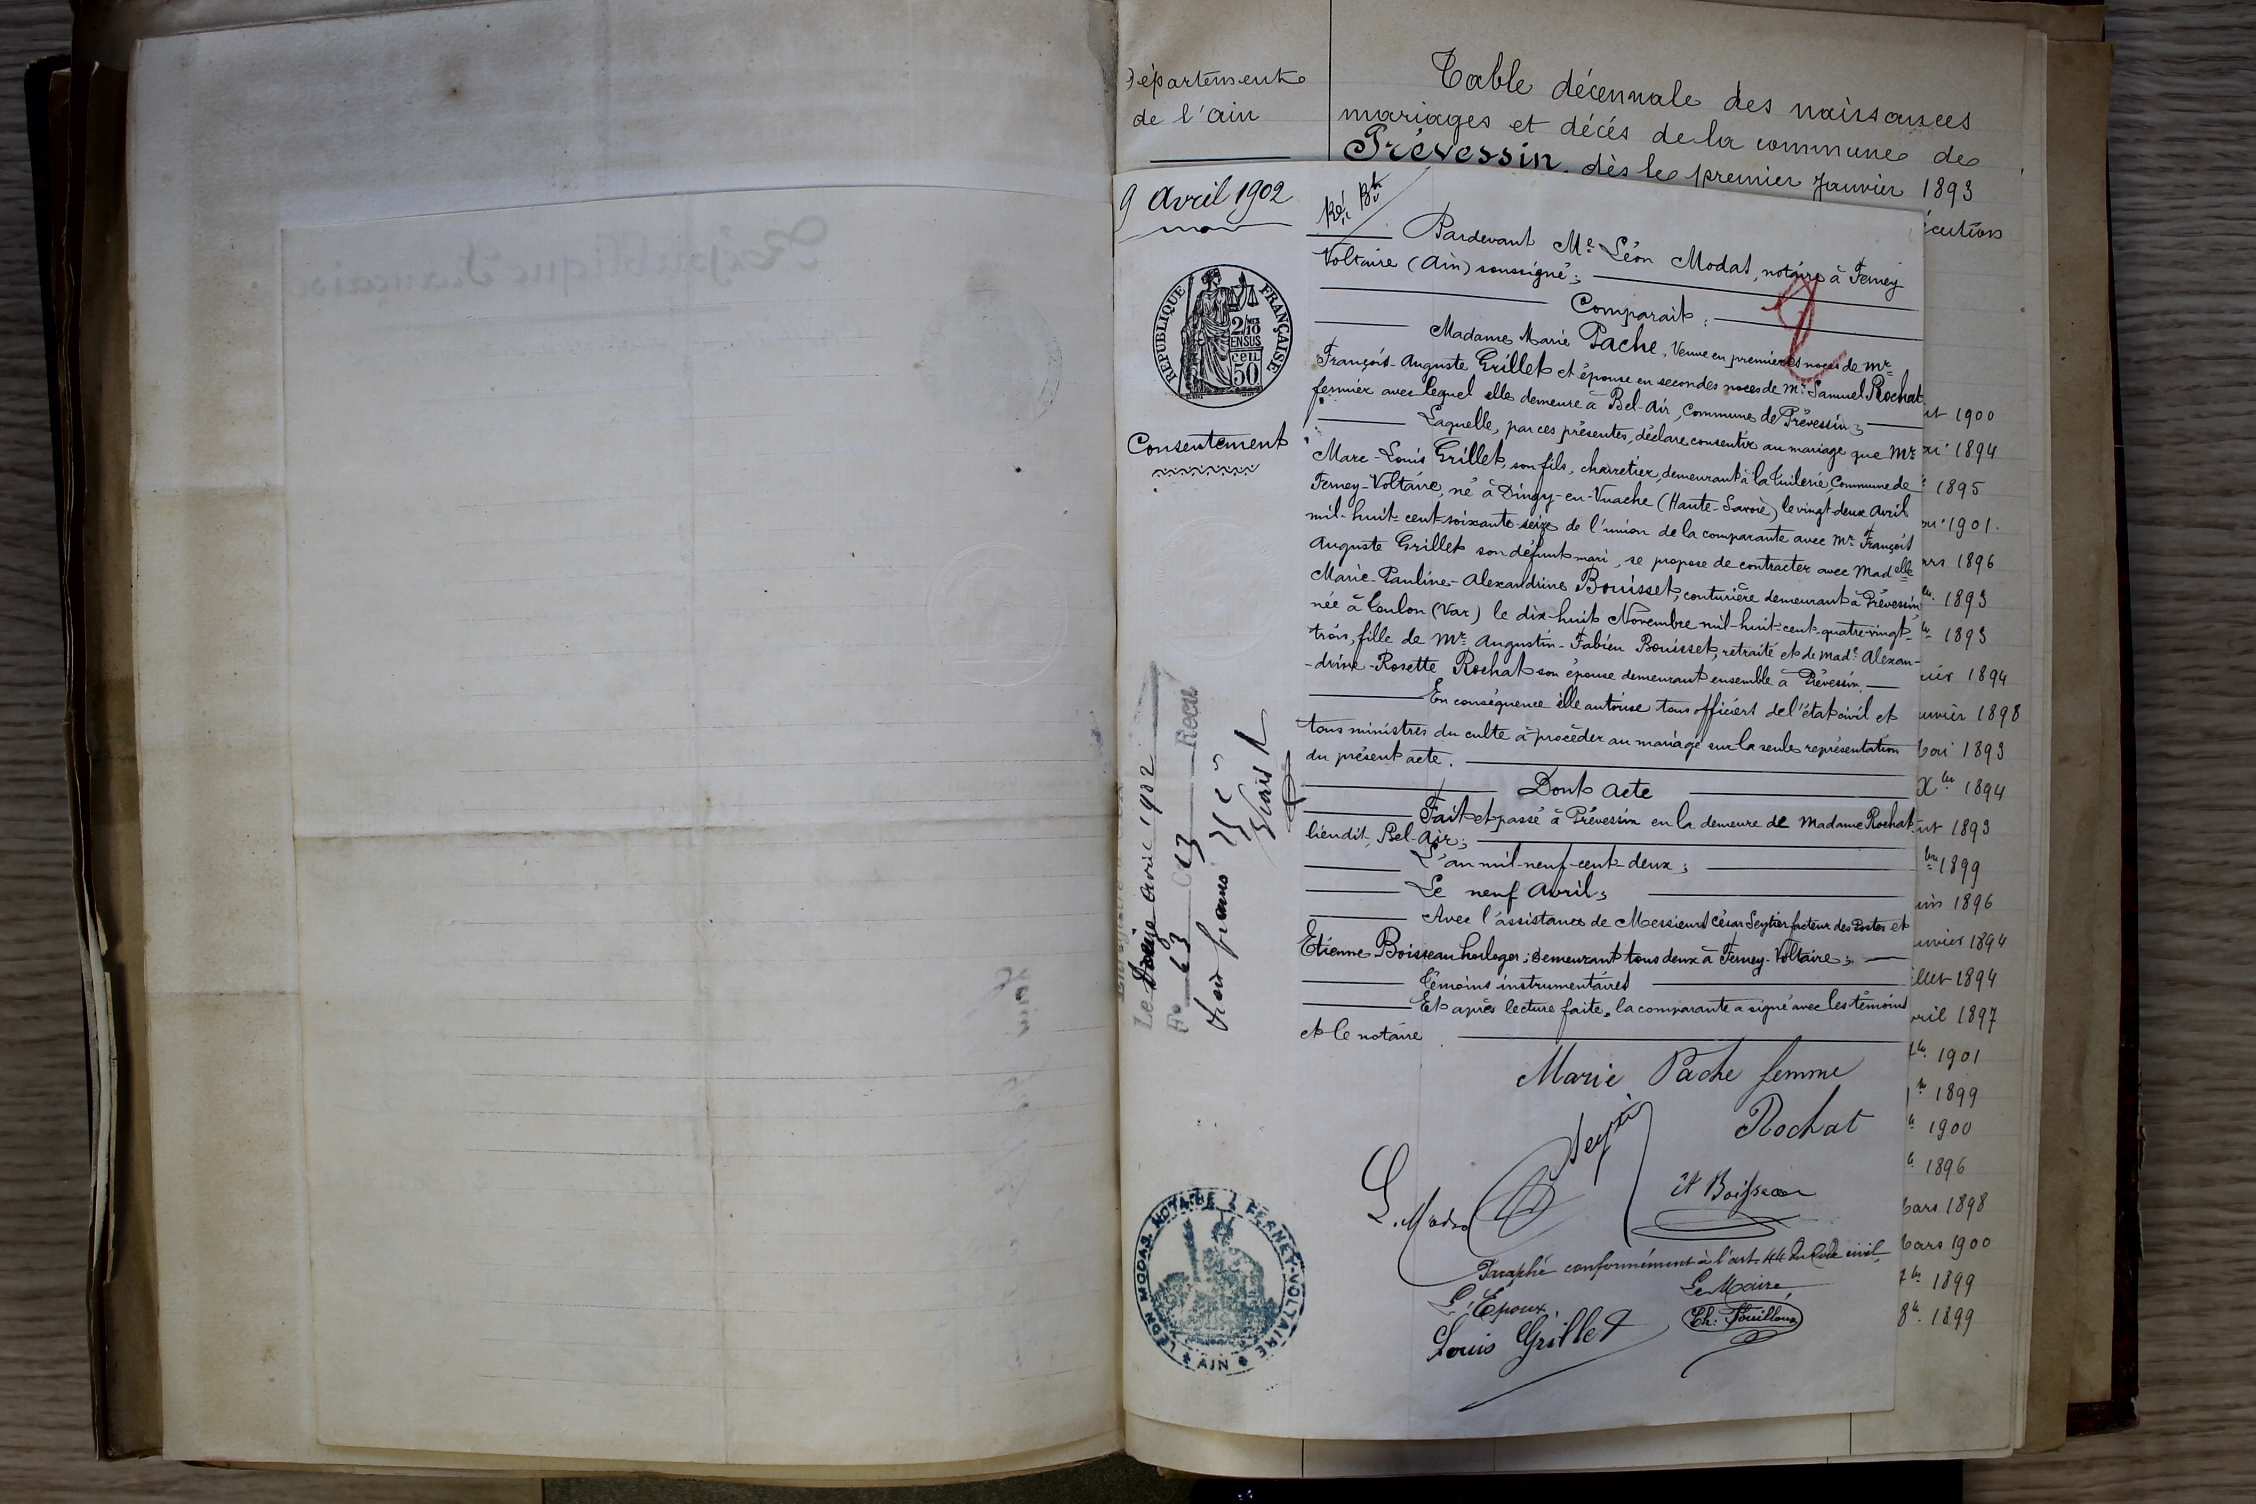 Département
de l'ain
Table décennale des naissances
mariages et décés de la commune de
Prévessin, dès le premier Janvier 1893
9 Avril 1902
Pardevant Me Léon Modas, notaire à Ferney
Voltaire (Ain) soussigné;
Comparait:
Madame Marie Pache, Veuve en premières noces de Mr
François-Auguste Grillet et épouse en secondes noces de Mr Samuel Rochat
fermier avec lequel elle demeure à Bel-Air, Commune de Prévessin;
Laquelle, par ces présentes, déclare consentir au mariage que Mr
Marc-Louis Grillet, son fils, charretier, demeurant à la Tuilerie, Commune de
Ferney-Voltaire, né à Dingy-en-Vuache (Haute-Savoie) le vingt-deux Avril
mil-huit-cent-soixante-seize de l'union de la comparante avec Mr François
Auguste Grillet son défunt mari, se propose de contracter avec Madelle
Marie-Pauline-Alexandrine Bouisset, couturière demeurant à Prévessin,
née à Toulon (Var) le dix-huit Novembre mil-huit-cent-quatre-vingt-
trois, fille de Mr Augustin-Fabien Bouisset, retraité et de Made Alexan-
-drine-Rosette Rochat son épouse demeurant ensemble à Prévessin.
En conséquence elle autorise tous officiers de l'état civil et
tous ministres du culte à procéder au mariage sur la seule représentation
du présent acte.
Dont Acte
Fait et passé à Prévessin en la demeure de Madame Rochat
lieudit, Bel-Air;
L'an mil-neuf-cent-deux;
Le neuf Avril;
Avec l'assistance de Messieurs César Seytier facteur des Postes et
Etienne Boisseau horloger; demeurant tous deux à Ferney-Voltaire;
témoins instrumentaires
Et après lecture faite, la comparante a signé avec les témoins
et le notaire
Marie Pache femme
Rochat
Et Boisseau
L. Modas
Paraphé conformément à l'art. 44 du Code civil,
L'Epoux,
Le Maire,
Louis Grillet
RÉPUBLIQUE FRANÇAISE
2/10
EN SUS
50 cen
Consentement
Le avril 1902
Fo 43 Reçu
LÉON MODAS. NOTAIRE À FERNEY-VOLTAIRE
AIN
1900
1894
1895
1901.
1896
1893
1893
1894
1898
1893
1894
1893
1899
1896
1894
1894
1897
1901
1899
1900
1896
1898
1900
1899
1899